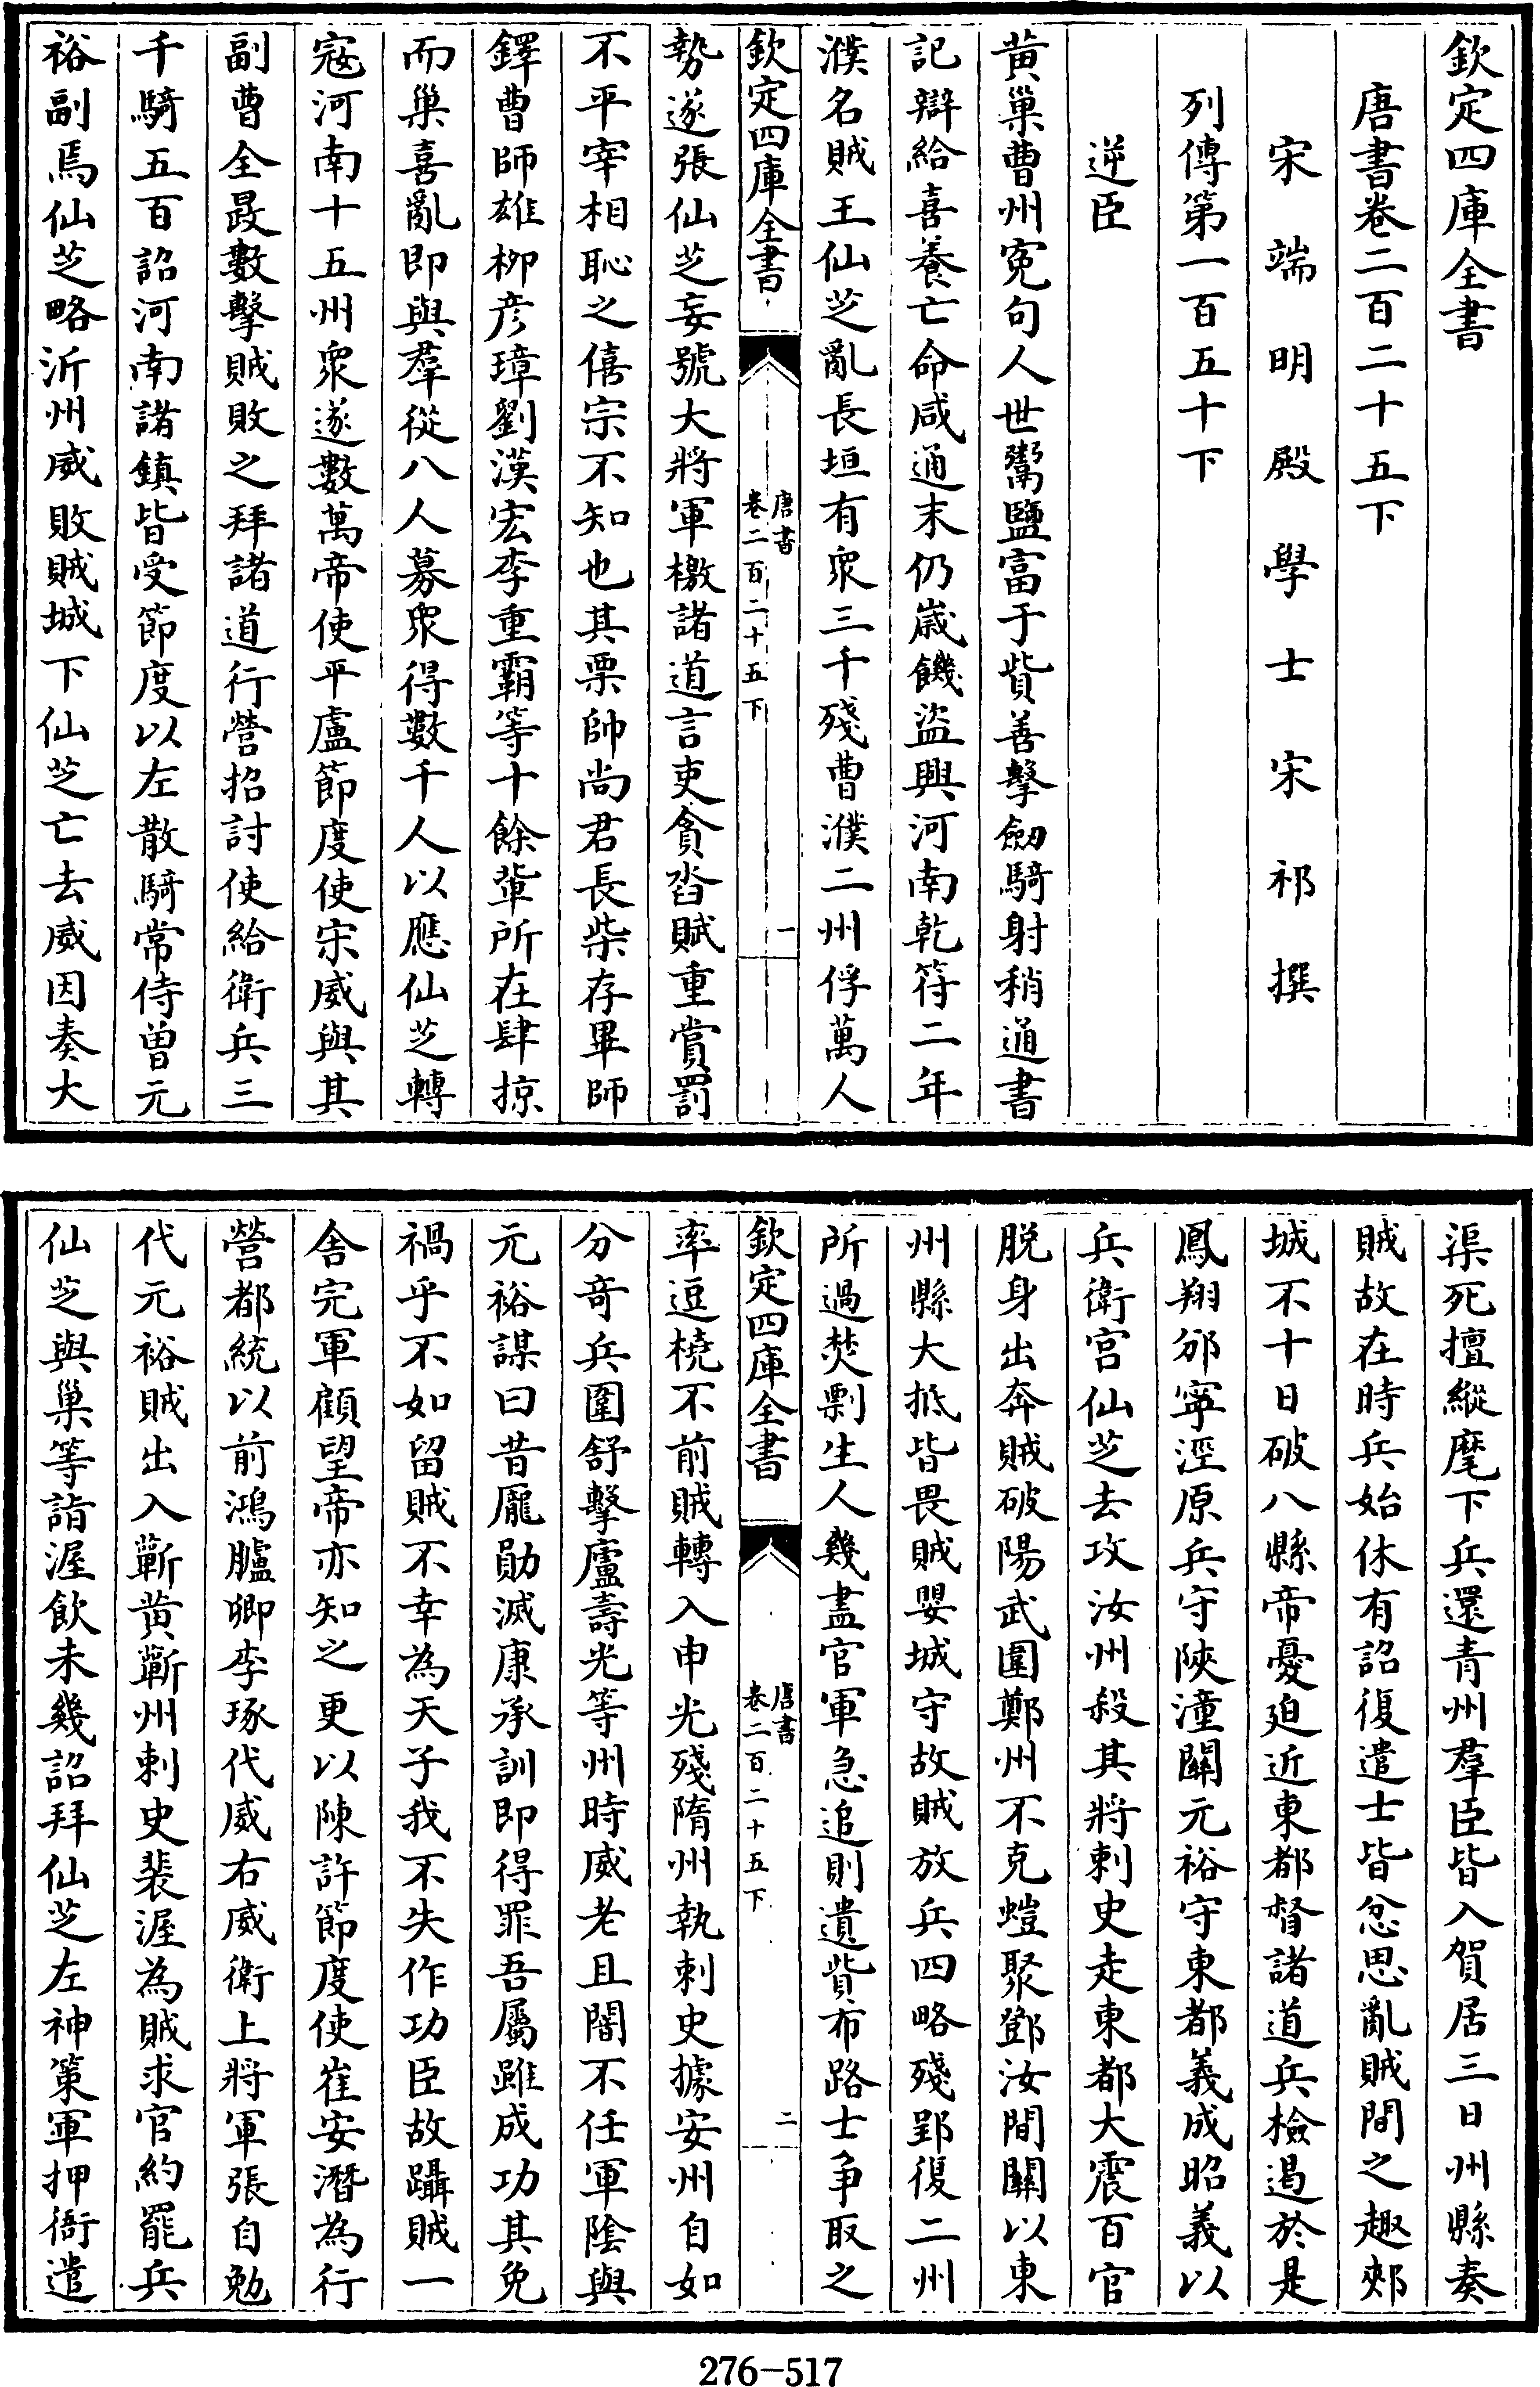 欽定四庫全書
唐書卷二百二十五下
宋端明殿學士宋祁撰
列傳第一百五十下
逆臣
黃巢曹州寃句人世鬻鹽富于貲善擊劒騎射稍通書
記辯給喜養亡命咸通末仍歲饑盜興河南乾符二年
濮名賊王仙芝亂長垣有衆三千殘曹濮二州俘萬人
欽定四庫全書
唐書
卷二百二十五下
一
勢遂張仙芝妄號大將軍檄諸道言吏貪沓賦重賞罰
不平宰相恥之僖宗不知也其票帥尚君長柴存畢師
鐸曹師雄柳彦璋劉漢宏李重霸等十餘輩所在肆掠
而巢喜亂即與羣從八人募衆得數千人以應仙芝轉
寇河南十五州衆遂數萬帝使平盧節度使宋威與其
副曹全晸數擊賊敗之拜諸道行營招討使給衛兵三
千騎五百詔河南諸鎮皆受節度以左散騎常侍曾元
裕副焉仙芝略沂州威敗賊城下仙芝亡去威因奏大
渠死擅縱麾下兵還青州羣臣皆入賀居三日州縣奏
賊故在時兵始休有詔復遣士皆忿思亂賊間之趣郟
城不十日破八縣帝憂迫近東都督諸道兵檢遏於是
鳳翔邠寧涇原兵守陜潼關元裕守東都義成昭義以
兵衛宫仙芝去攻汝州殺其將刺史走東都大震百官
脱身出奔賊破陽武圍鄭州不克螘聚鄧汝間關以東
州縣大抵皆畏賊嬰城守故賊放兵四略殘郢復二州
所過焚剽生人幾盡官軍急追則遺貲布路士争取之
欽定四庫全書
唐書
卷二百二十五下
二
率逗橈不前賊轉入申光殘隋州執刺史據安州自如
分奇兵圍舒擊廬壽光等州時威老且闇不任軍隂與
元裕謀曰昔龎勛滅康承訓即得罪吾屬雖成功其免
禍乎不如留賊不幸為天子我不失作功臣故躡賊一
舍完軍顧望帝亦知之更以陳許節度使崔安潛為行
營都統以前鴻臚卿李琢代威右威衛上將軍張自勉
代元裕賊出入蘄黄蘄州刺史裴渥為賊求官約罷兵
仙芝與巢等詣渥飲未幾詔拜仙芝左神策軍押衙遣
276-517